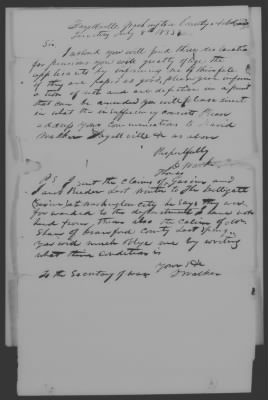 Fayettville Washington County Arkansas
Tuesday July 8th 1853
Sir
I send you will find three declaration
for pensions you will greatly oblige the
applicants by informing me of the fate
if they are
tion of rite and are defective in a point
that can be amended you will please
in what the insufficiency consists Please
address your communications to David
Walker Fayettville &c as above
Respectfully
D Walker
P.S I sent the claims of
and last winter to the Delegate
at Washington city he says they were
forwarded to the department I have not
heard from them also the claim of Wm
Shaw of Crawford County last Spring
you will much oblige me by writing
what their condition is
Yours &c
D Walker
to the Secretary of war